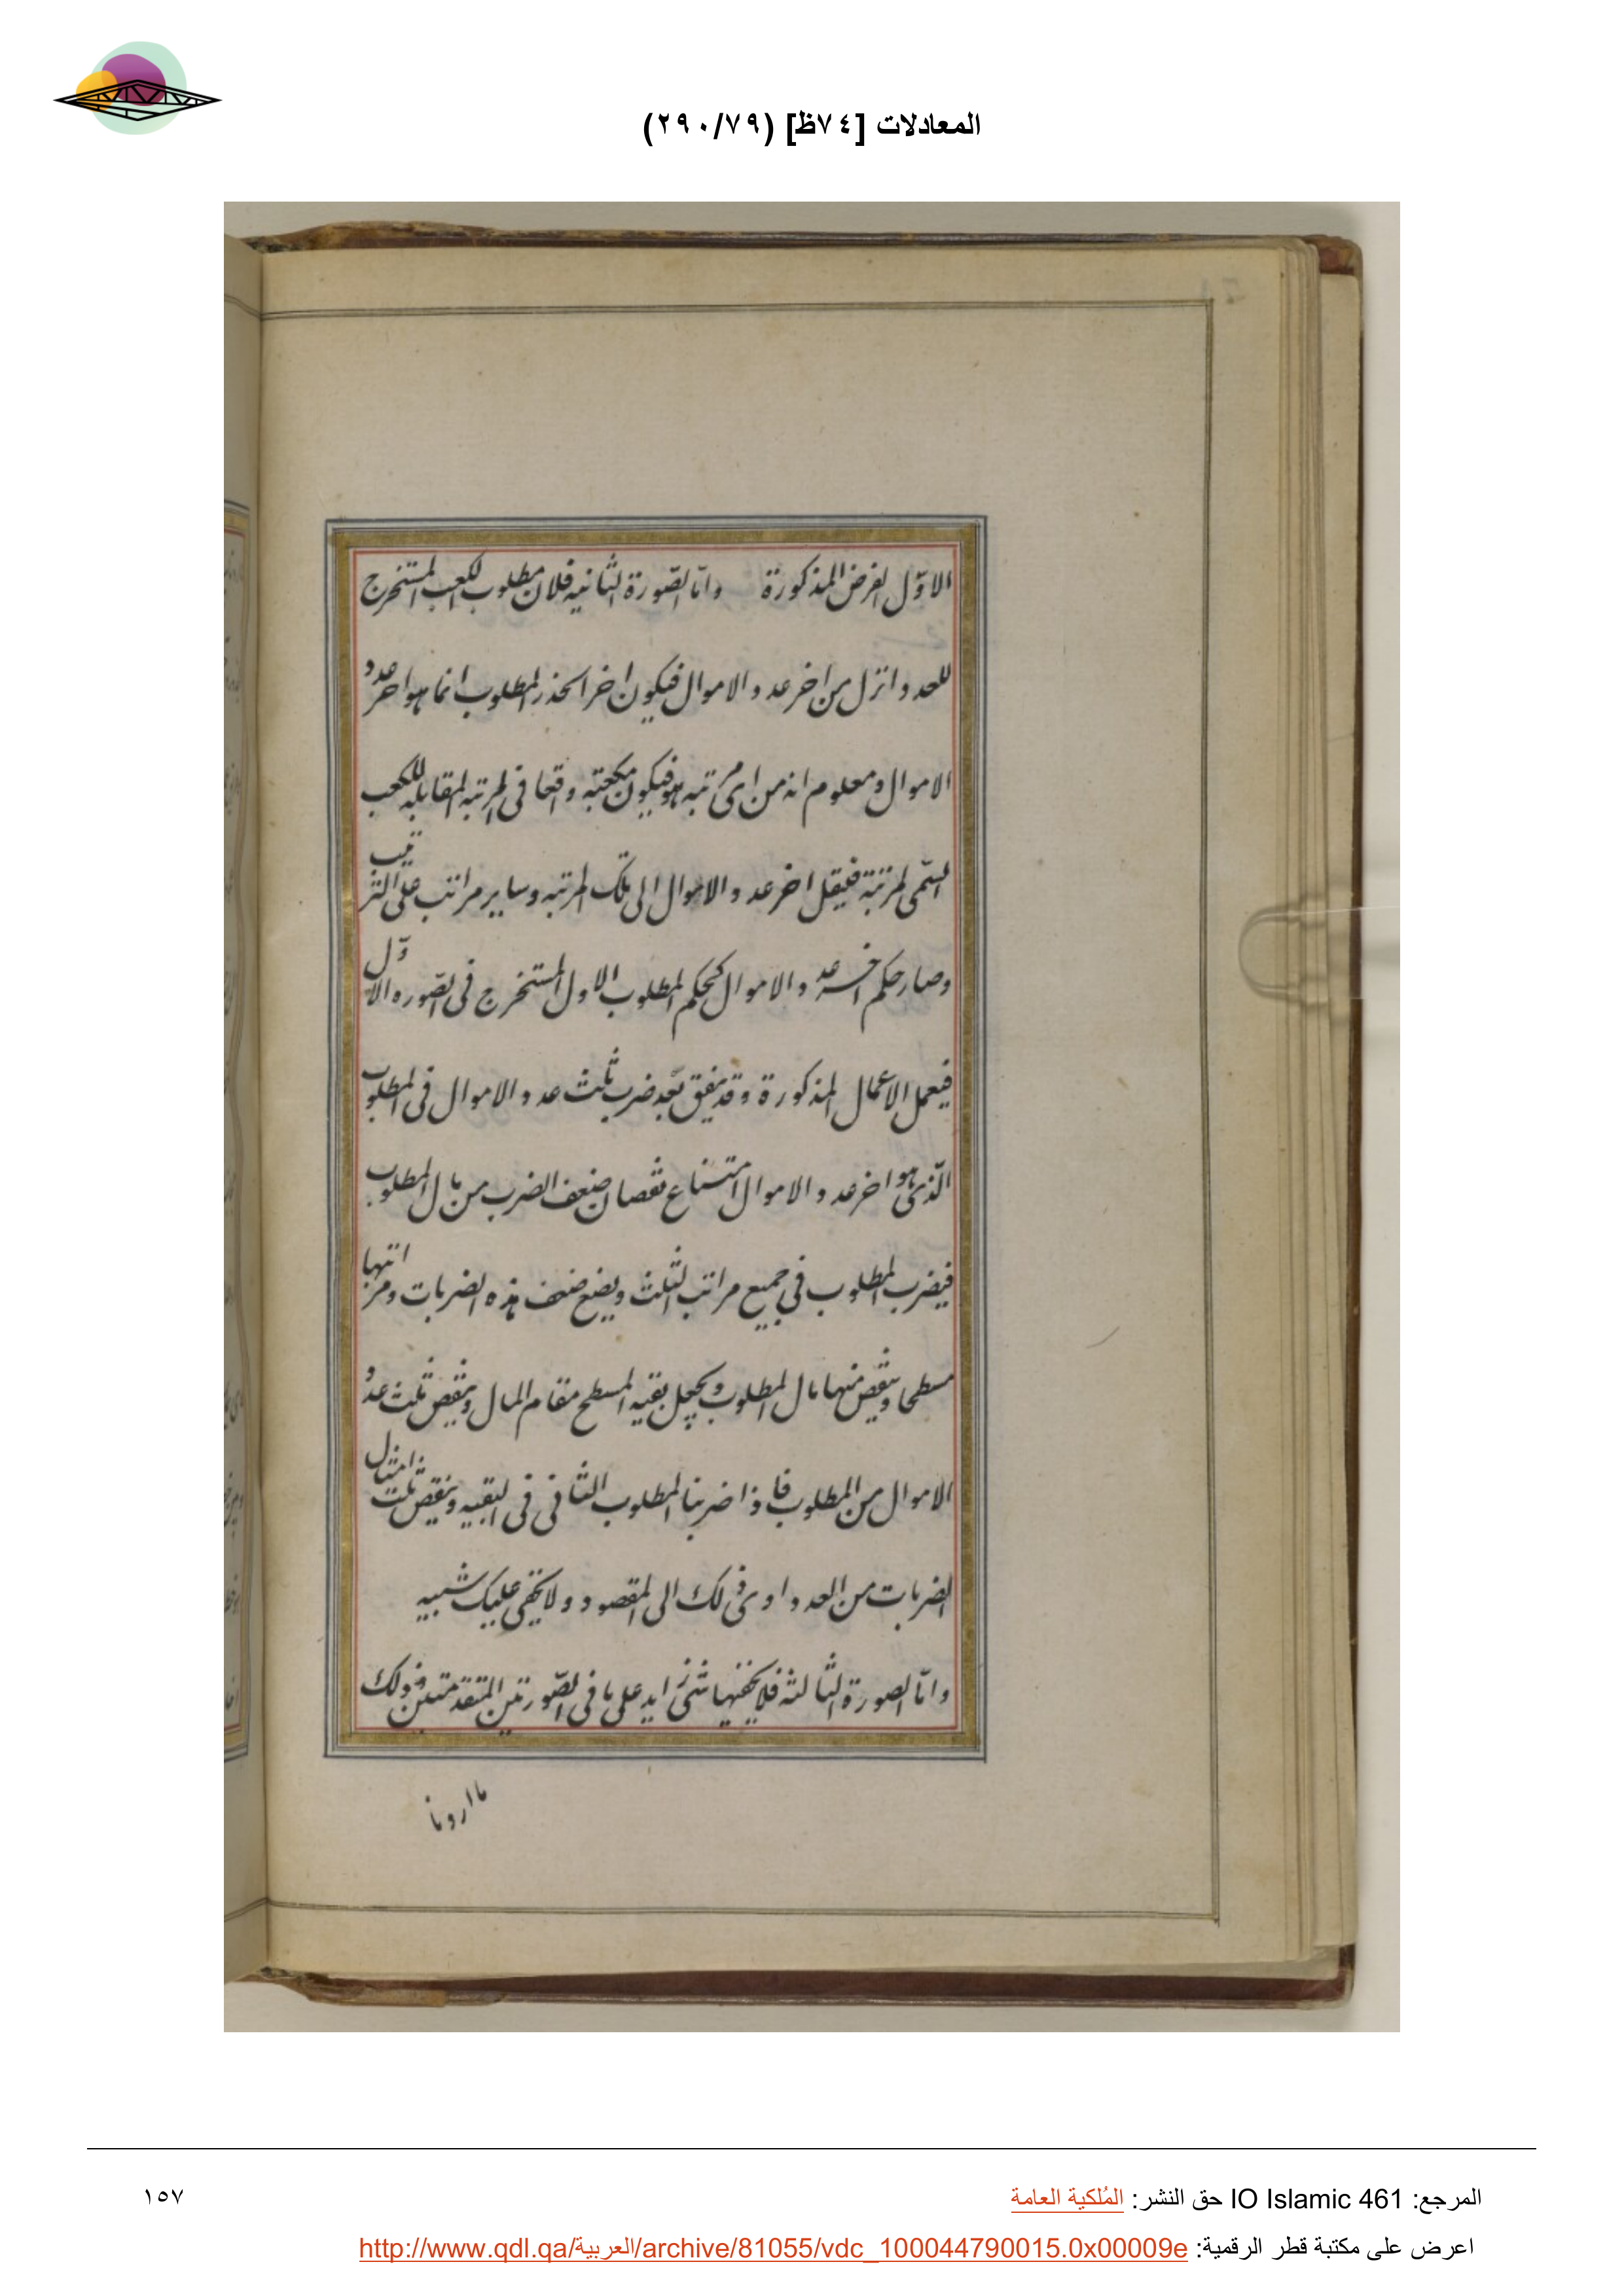 المعادلات [٧٤ظ] (٢٩٠/٧٩)
الاوّل لغرض المذكورة وامّا الصّورة الثانيه فلان مطلوب الكعب المستخرج
للعدد انزل من اخر عدد الاموال فيكون اخر الجذر المطلوب انما هو اخر عدد
الاموال ومعلوم انه من اى مرتبه هو فيكون مكعبه واقعا فى المرتبه المقابله للكعب
السّمى لمرتبة فينقل اخر عدد الاموال الى تلك المرتبه وساير مراتب على الترتيب
وصار حكم اخر عدد الاموال كحكم المطلوب الاول المستخرج فى الصّوره الاوّل
فيعمل الاعمال المذكورة وقد يتفق بعد ضرب ثلث عدد الاموال فى المطلوب
الّذى هو اخر عدد الاموال امتناع نقصان ضعف الضرب من مال المطلوب
فيضرب المطلوب فى جميع مراتب الثلث ويضع ضعف هذه الضربات ومراتبها
مسطحا وينقص منها مال المطلوب ويجعل بقيه المسطح مقام المال وينقص ثلث عدد
الاموال من المطلوب فاذا ضربنا المطلوب الثانى فى البقيه وينقص ثلث امثال
الضربات من العدد ادى ذلك الى المقصود ولا يخفى عليك شبيه
وامّا الصورة الثالثة فلا يخفيها شئ زايد على ما فى الصّورتين المتقدمتين وذلك
ما اردنا
المرجع: IO Islamic 461 حق النشر: المُلكية العامة
١٥٧
اعرض على مكتبة قطر الرقمية: http://www.qdl.qa/العربية/archive/81055/vdc_100044790015.0x00009e